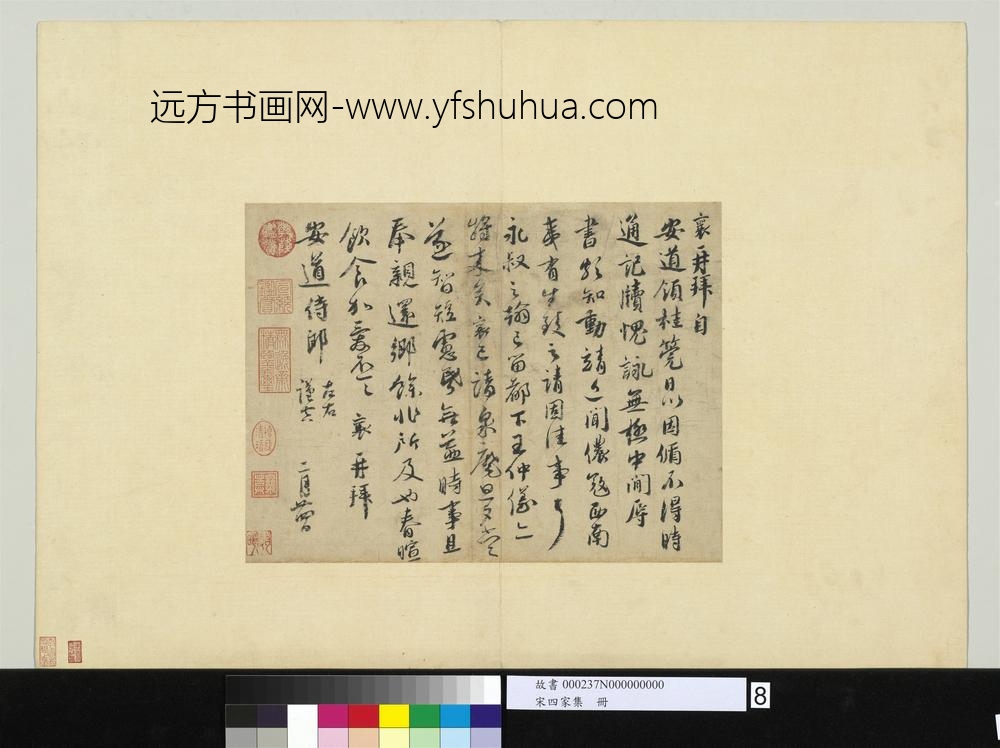 远方书画网-www.yfshuhua.com
襄再拜自
安道領桂筦日以因循不得時
通記牘愧詠無極中間辱
書頗知動靖近聞儂寇西南
夷有生致之請固佳事
永叔之翰已留都下王仲儀亦
將來矣襄已請泉麾旦夕當
遂智短慮昬無益時事且
奉親還鄉餘非所及也春暄
飲食加愛不一一襄再拜
安道侍郎左右謹空
二月廿四日
故書 000237N000000000
宋四家集 冊
8